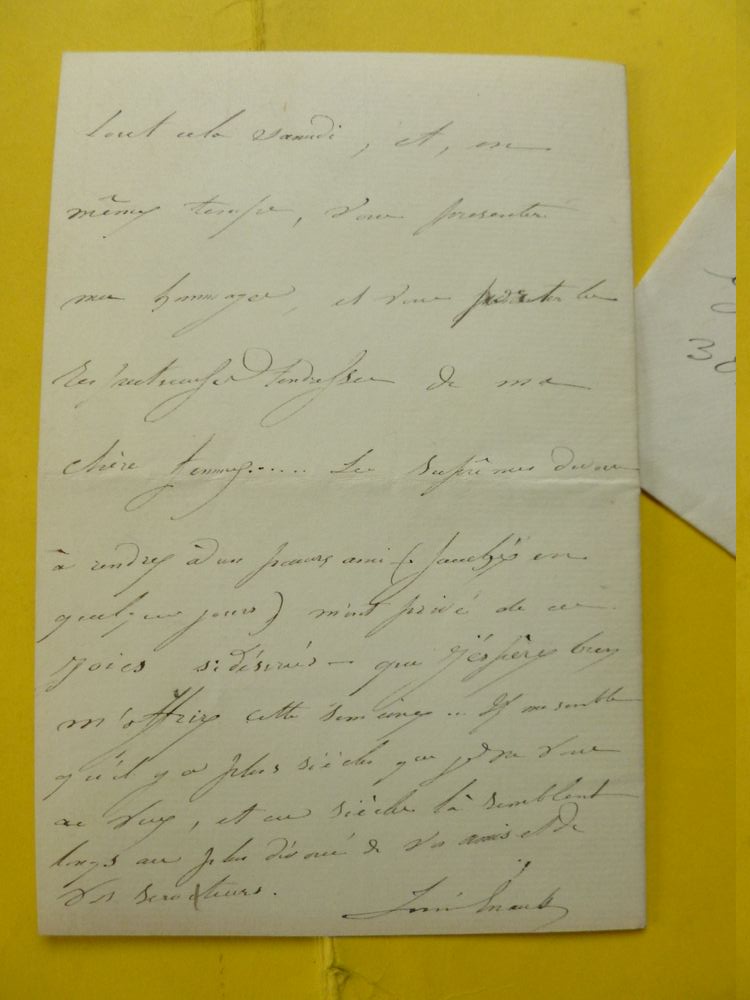 tout cela samedi, et, en
même temps, vous présenter
mes hommages, et vous présenter les
respectueuses tendresses de ma
chère femme..... Les suprêmes devoirs
à rendre à un pauvre ami ( en
quelques jours) m'ont privé de ces
joies si désirées — que j'espère bien
m'offrir cette semaine .. Il me semble
qu'il y a plus siècles que je ne vous
ai vus, et ces siècles là semblent
longs au plus dévoué de vos amis et de
vos serviteurs.
Louis Énault
30